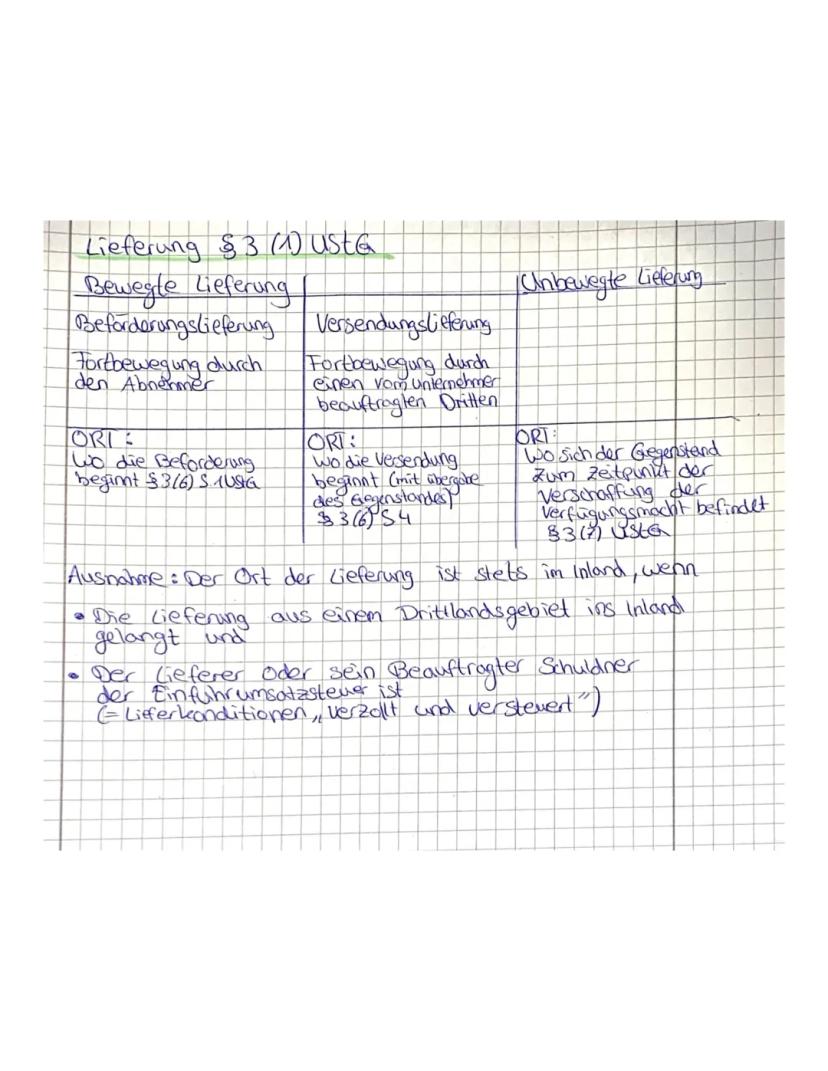 Lieferung § 3 (1) UStG
Bewegte Lieferung
Unbewegte Lieferung
Beförderungslieferung
Versendungslieferung
Fortbewegung durch
den Abnehmer
Fortbewegung durch
einen vom Unternehmer
beauftragten Dritten
ORT:
Wo die Beförderung
beginnt § 3 (6) S. 1 UStG
ORT:
Wo die Versendung
beginnt (mit übergabe
des Gegenstandes)
§ 3 (6) S 4
ORT:
Wo sich der Gegenstand
zum Zeitpunkt der
Verschaffung der
Verfügungsmacht befindet
§ 3 (7) UStG
Ausnahme: Der Ort der Lieferung ist stets im Inland, wenn
• Die Lieferung aus einem Drittlandsgebiet ins Inland
gelangt und
• Der Lieferer oder sein Beauftragter Schuldner
der Einfuhrumsatzsteuer ist
(= Lieferkonditionen „verzollt und versteuert")